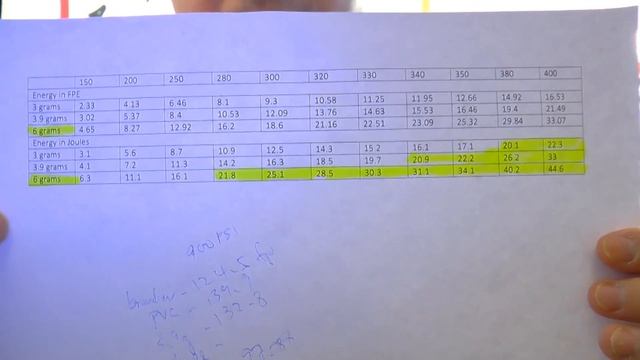 150 200 250 280 300 320 330 340 350 380 400
Energy in FPE
3 grams 2.33 4.13 6.46 8.1 9.3 10.58 11.25 11.95 12.66 14.92 16.53
3.9 grams 3.02 5.37 8.4 10.53 12.09 13.76 14.63 15.53 16.46 19.4 21.49
6 grams 4.65 8.27 12.92 16.2 18.6 21.16 22.51 23.09 25.32 29.84 33.07
Energy in Joules
3 grams 3.1 5.6 8.7 10.9 12.5 14.3 15.2 16.1 17.1 20.1 22.3
3.9 grams 4.1 7.2 11.3 14.2 16.3 18.5 19.7 20.9 22.2 26.2 33
6 grams 6.3 11.1 16.1 21.8 25.1 28.5 30.3 31.1 34.1 40.2 44.6
900 PSI
124.5
PVC - 139.7
132.8